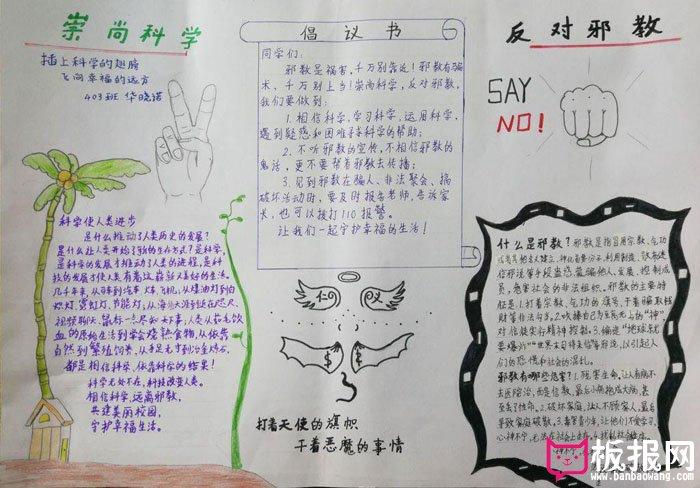 崇尚科学
插上科学的翅膀
飞向幸福的远方
403班 华晓诺
科学使人类进步
是什么推动了人类历史的发展?
是什么让人类开始了新的生存方式?是科学,
是科学的发展才推动了人类的进程,是科
技的发展才使人类有着这崭新又美好的生活。
几千年来,从马车到汽车、火车、飞机,从煤油灯到白
炽灯、霓虹灯、节能灯,从海角天涯到近在咫尺,
视频聊天,鼠标一点尽知好事;人类从茹毛饮
血的原始生活到学会烧熟食物,从依靠
自然到繁殖饲养,从手足无事到冶金炼石。
都是相信科学、依靠科学的结果!
科学无处不在,科技改变人类。
相信科学,远离邪教,
共建美丽校园,
守护幸福生活。
倡议书
同学们:
邪教是祸害,千万别靠近!邪教有骗
术,千万别上当!崇尚科学,反对邪教,
我们要做到:
1. 相信科学,学习科学,运用科学,
遇到疑惑和困难寻求科学的帮助;
2. 不听邪教的宣传,不相信邪教的
鬼话,更不要帮着邪教去传播;
3. 见到邪教在骗人、非法聚会、搞
破坏活动时,要及时报告老师,告诉家
长,也可以拨打110报警。
让我们一起守护幸福的生活!
仁 义
$ $
打着天使的旗帜
干着恶魔的事情
反对邪教
SAY
NO!
什么是邪教?邪教是指冒用宗教、气功
或者其他名义建立,神化首要分子,利用制造、散布迷
信邪说等手段蛊惑、蒙骗他人,发展、控制成员,
危害社会的非法组织。邪教的主要特
征是:1.打着宗教、气功的旗号,干着骗取钱
财等非法勾当;2.吹捧自己为无所不能的“神”,
对信徒实行精神控制;3.编造“地球就
要爆炸”“世界末日将来临”等邪说,以引起人
们的恐慌和社会的混乱。
邪教有哪些危害?1.残害生命,让人有病不
去医院治,而是信教,最后小病拖成大病,甚
至丢了性命。2.破坏家庭,让人不顾家人,最后
导致家庭破散。3.毒害青少年,让他们不爱学习,
板报网
www.banbaowang.com